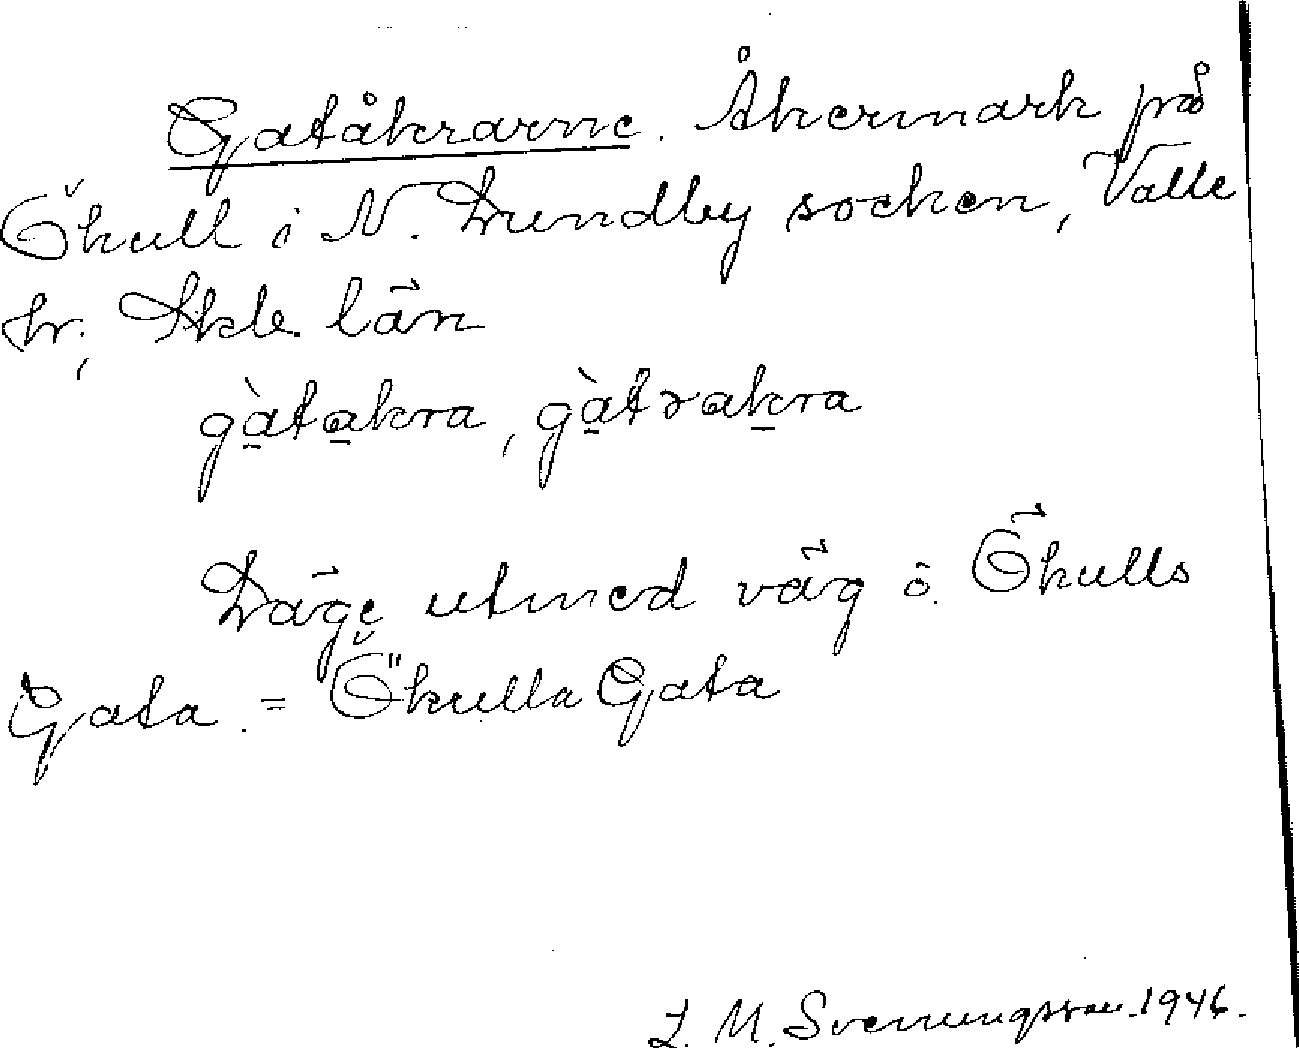 Gatåkrarne. Åkermark på
Ökull i N. Lundby socken, Valle
hr., Skb. län
gàtakra, gàtrakra
Läge utmed väg ö. Ökulls
Gata. = Ökulla Gata
L. M. Svenungsson. 1946.